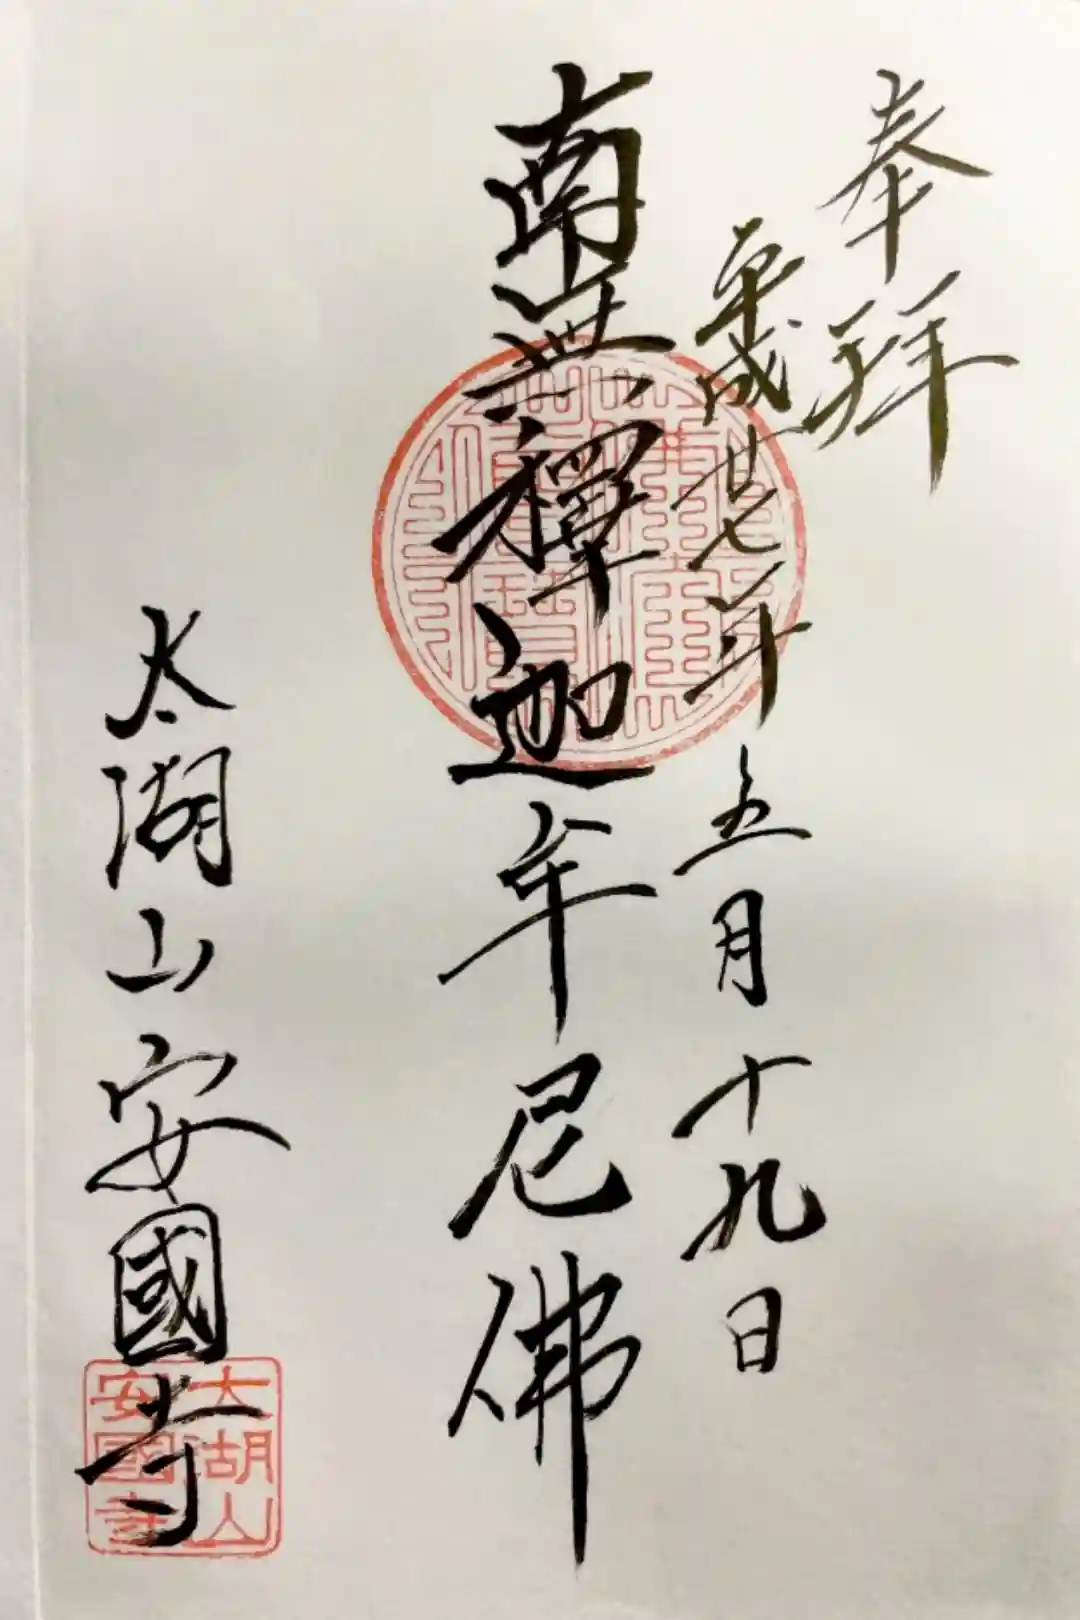 奉拜
平成廿七年五月十九日
南無釋迦牟尼佛
太湖山安國寺
大湖山
安國寺